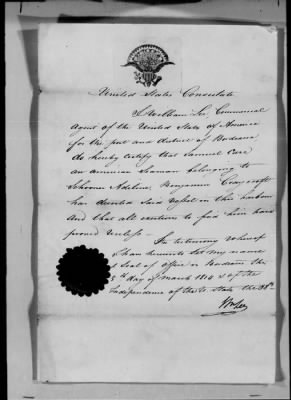 United States Consulate
I William Lee Commercial
Agent of the United State of America
for the port and district of Bordeaux
do hereby certify that Samuel
an american Seaman belonging to
Schooner Adeline, Benjamin
has deserted Said Vessel in this harbour
And that all to find him have
proved useless –
In testimony whereof
I have hereunto Set my name
& Seal of Office in Bordeaux the
8th day of March 1814 & of the
Independence of the U States the 38th
Wm Lee